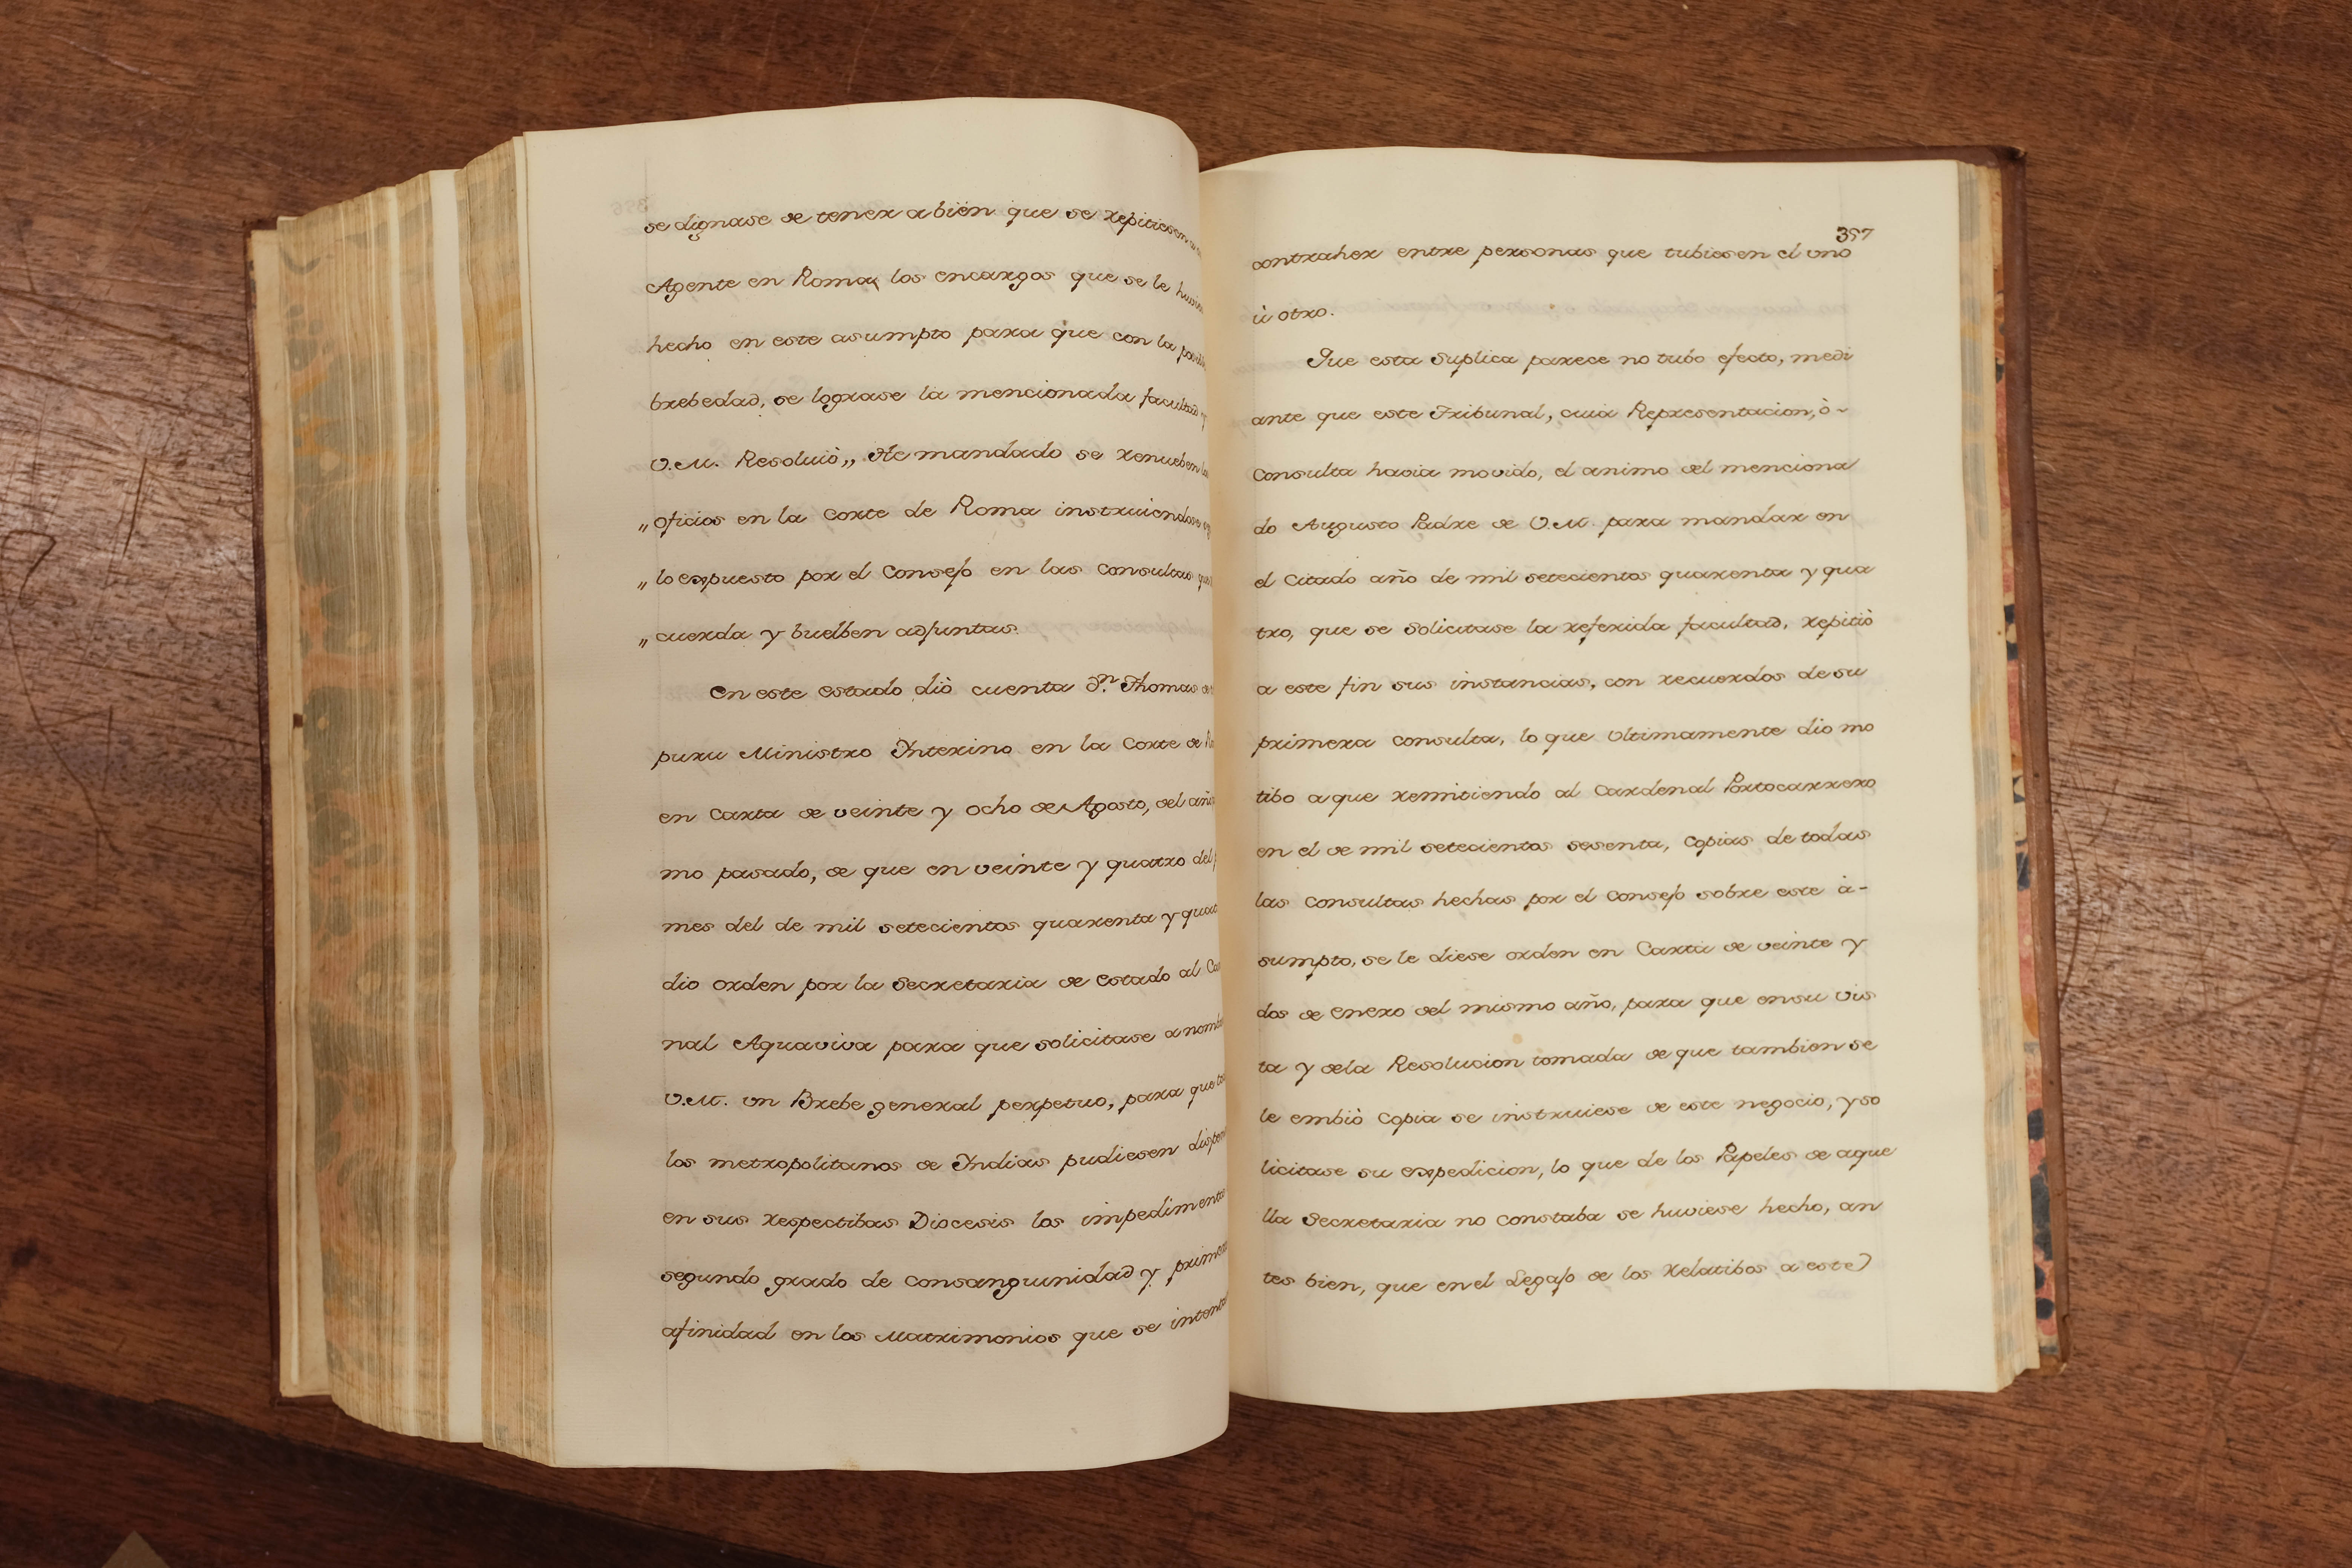 se dignase de tener a bien que se repitiesen
Agente en Roma, los encargos que se le
hecho en este asumpto para que con la
brebedad, se lograse la mencionada facultad y
V.M. Resolviò,, He mandado se renueben
,, oficios en la Corte de Roma instruiendose
,, lo expuesto por el Consejo en las Consultas que
,, cuerda y buelben adjuntas.
En este estado diò cuenta Dn. Thomas
puru Ministro Interino en la Corte de
en Carta de veinte y ocho de Agosto, del año
mo pasado, de que en veinte y quatro del
mes del de mil setecientos quarenta y
dio orden por la Secretaria de Estado al
nal Aquaviva para que solicitase a
V.M. un Brebe general perpetuo, para que
los metropolitanos de Indias pudiesen
en sus respectibas Diocesis los impedimento
segundo grado de consanguinidad y
afinidad en los Matrimonios que se
357
contraher entre personas que tubiesen el uno
ù otro.
Que esta Suplica parece no tubo efecto, medi
ante que este Tribunal, cuia Representacion, ò-
Consulta havia movido, el animo del menciona
do Augusto Padre de V.M. para mandar en
el Citado año de mil setecientos quarenta y qua
tro, que se solicitase la referida facultad, repitiò
a este fin sus instancias, con recuerdos de su
primera consulta, lo que Ultimamente dio mo
tibo a que remitiendo al Cardenal Portocarrero
en el de mil setecientos sesenta, Copias de todas
las Consultas hechas por el Consejo sobre este à-
sumpto, se le diese orden en Carta de veinte y
dos de Enero del mismo año, para que en su vis
ta y de la Resolucion tomada de que tambien se
le embiò Copia se instruiese de este negocio, y so
licitase su expedicion, lo que de los Papeles de aque
lla Secretaria no constaba se huviese hecho, an
tes bien, que en el Legajo de los Relatibos a este